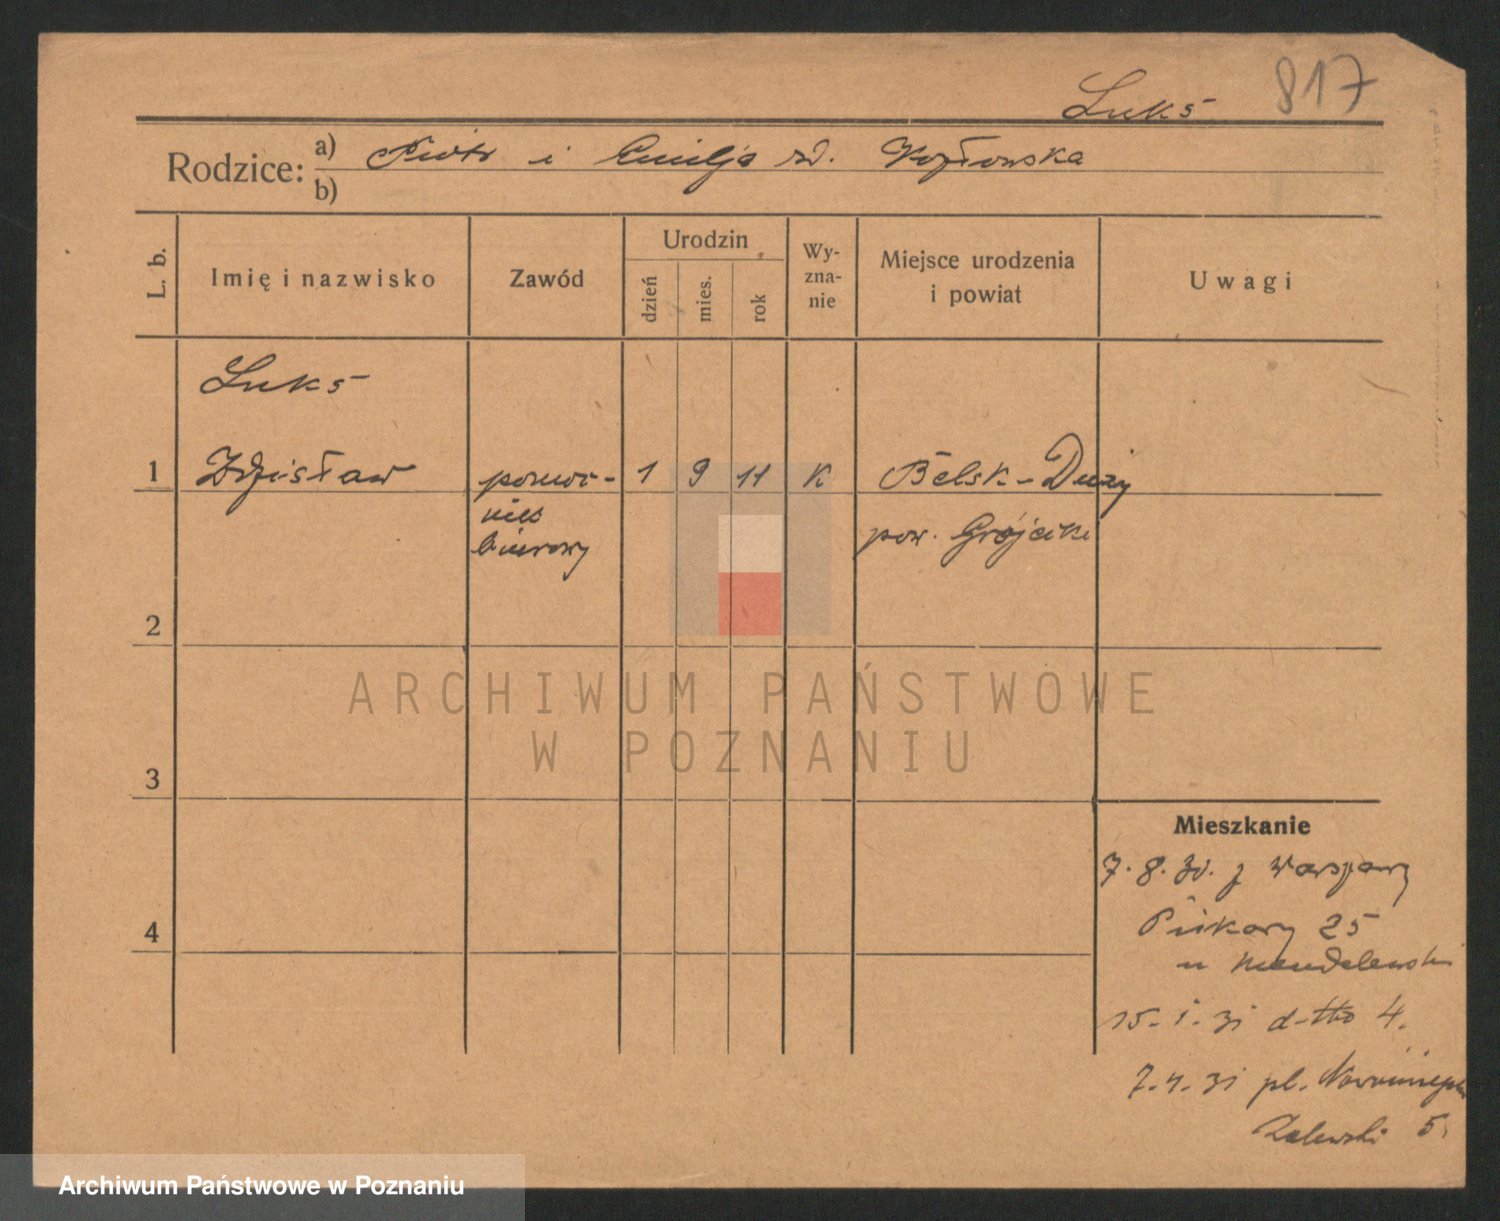 Luks 817
Rodzice: a) Piotr i Emilja zd. Kozłowska
b)
L. b.
Imię i nazwisko
Zawód
Urodzin
dzień
mies.
rok
Wy-
zna-
nie
Miejsce urodzenia
i powiat
Uwagi
Luks
1 Zdzisław pomoc- 1 9 11 K Belsk-Duży
nik pow. Grójecki
biurowy
2
3
4
ARCHIWUM PAŃSTWOWE
W POZNANIU
Mieszkanie
7.8.30. z Warszawy
Piekary 25
u
15-1-31 d-tto 4.
7.4.31 pl. Nowomiejski
Zalewski 5.
Archiwum Państwowe w Poznaniu